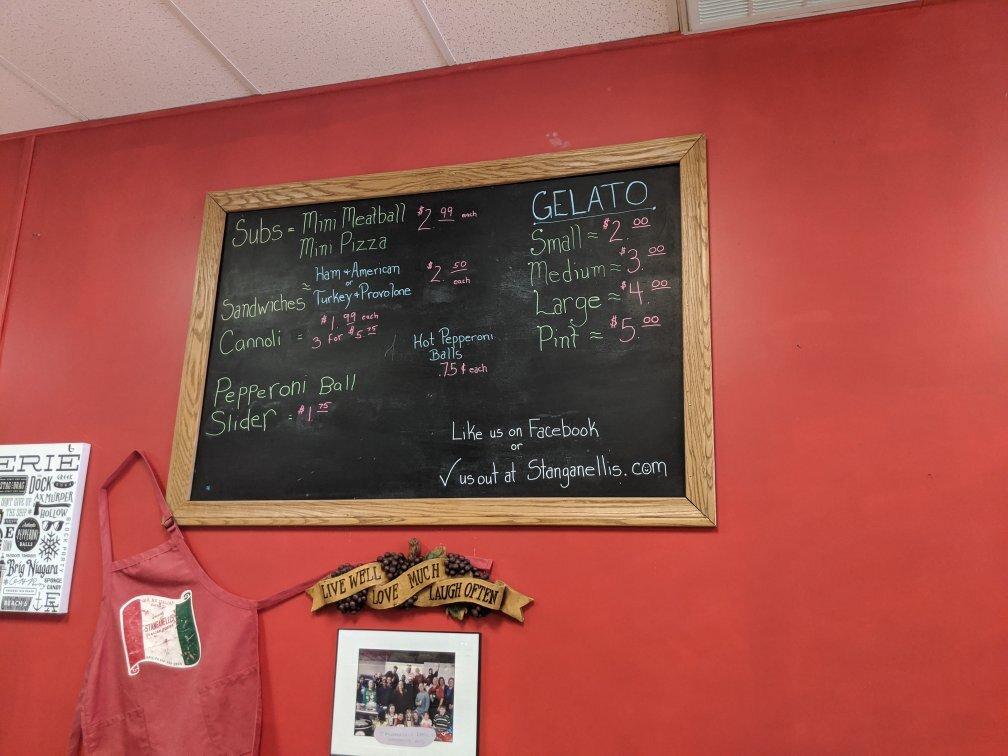 Subs = Mini Meatball $2.99 each
Mini Pizza
Sandwiches ≈ Ham + American $2.50 each
or
Turkey + Provolone
Cannoli = $1.99 each
3 for $5.75
Hot Pepperoni
Balls
.75¢ each
Pepperoni Ball
Slider = $1.75
GELATO
Small ≈ $2.00
Medium ≈ $3.00
Large ≈ $4.00
Pint ≈ $5.00
Like us on Facebook
or
✓ us out at Stanganellis.com
ERIE
DOCK
AX MURDER
HOLLOW
DON'T GIVE UP
THE SHIP
PEPPERONI
BALLS
BLOCK PARTY
Brig Niagara
SPONGE
CANDY
BEACH 6
STANGANELLI'S
LIVE WELL
LOVE MUCH
LAUGH OFTEN